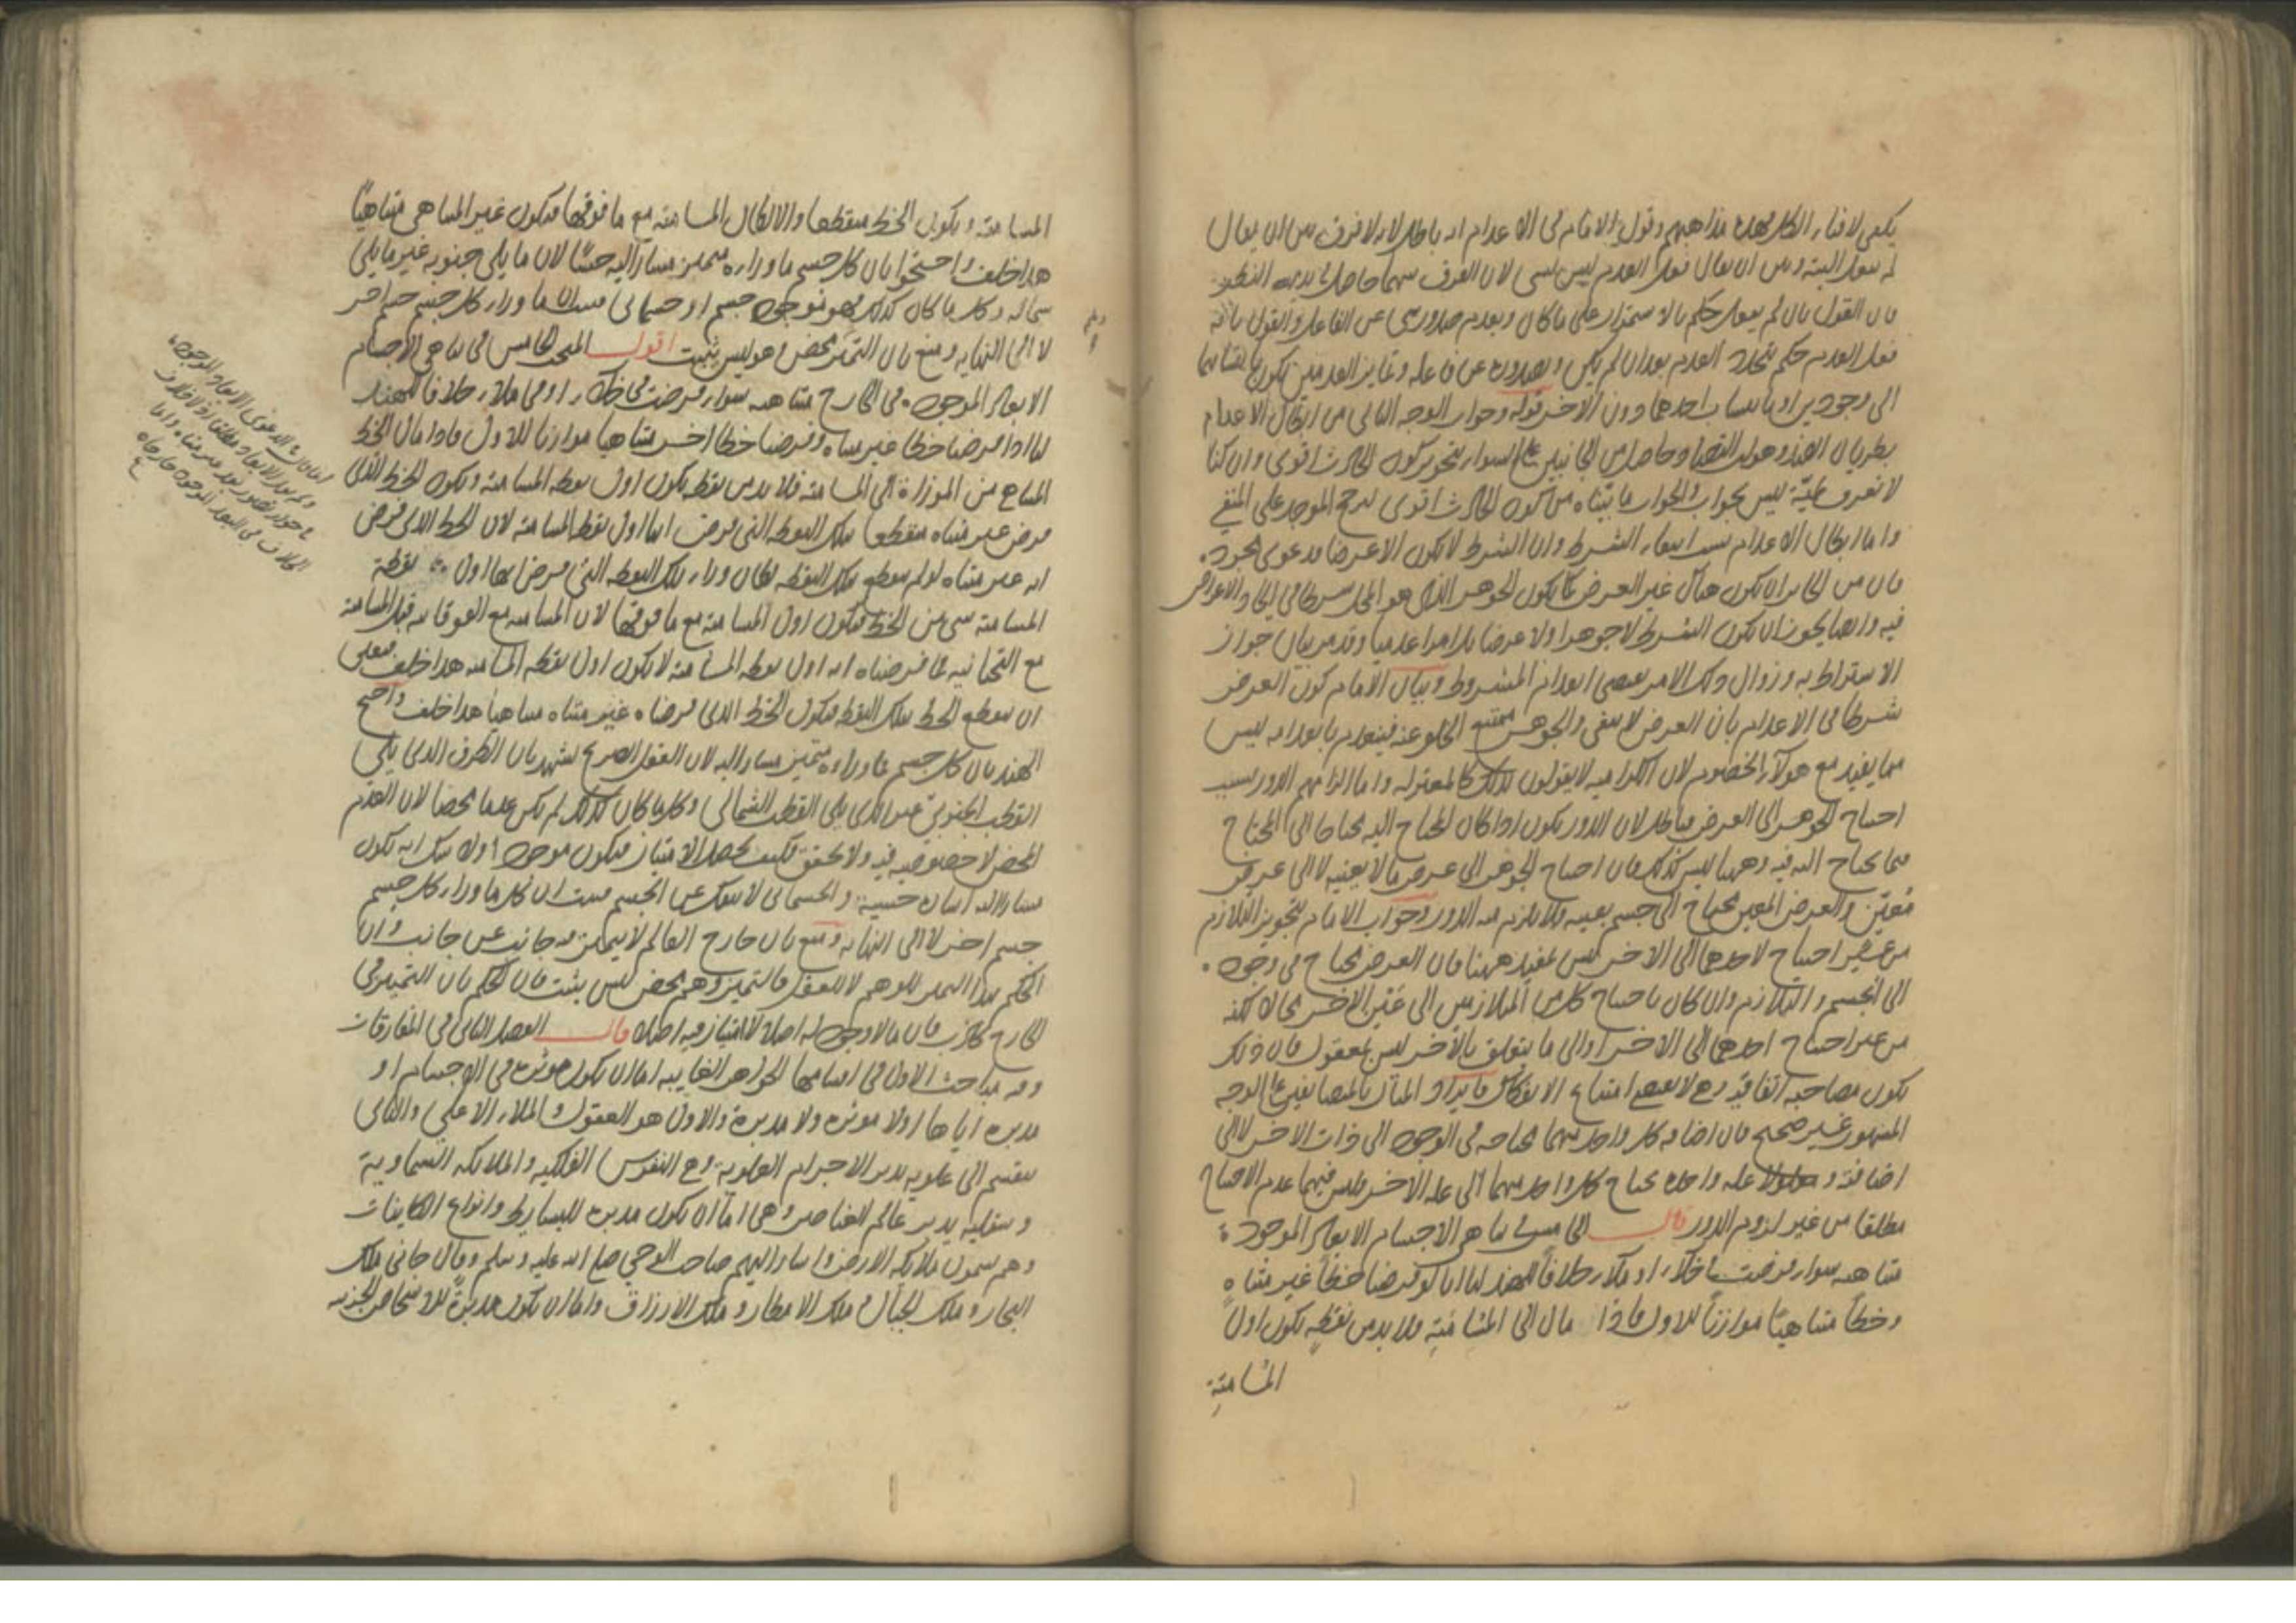 يكفي لافناء الكل بهذه مذاهبهم وقول الامام في الاعدام انه باطل لانه لا فرق بين ان يقال
لم يفعل البتة وبين ان يقال فعل العدم ليس بشي لان الفرق بينهما حاصل في بديهة النظر
فان القول بان لم يفعل حكم بالاستمرار على ما كان وبعدم صدور شي عن الفاعل والقول بانه
فعل العدم حكم بتجدد العدم بعد ان لم يكن وبصدوره عن فاعله وتمايز العدمين يكون بانتسابهما
الى وجودين او بانتساب احدهما دون الاخر قوله وجواب الوجه الثاني من ابطال الاعدام
بطريان الضد وهو ان التضاد حاصل من الجانبين على السواء بتجويز كون الحادث اقوى وان كنا
لا نعرف لميّته ليس بجواب والجواب ما بيّناه من كون الحادث اقوى لترجح الموجد على المبقي
واما ابطال الاعدام بسبب انتفاء الشرط وان الشرط لا يكون الا عرضا فدعوى مجرد
فان من الجائز ان يكون هناك غير العرض كما يكون الجوهر الذي هو المحل شرطا في ايجاد الاعراض
فيه وايضا يجوز ان يكون الشرط لا جوهرا ولا عرضا بل امرا عدميا وقد مر بيان جواز
الاشتراط به وزوال ذلك الامر يقتضي انعدام المشروط وبيان الامام كون العرض
شرطا في الاعدام بان العرض لا يبقى والجوهر ممتنع الخلو عنه فينعدم بانعدامه ليس
مما يفيد مع هؤلاء الخصوم لان الكرامية لا يقولون بذلك كالمعتزلة واما الزامهم الدور بسبب
احتياج الجوهر الى العرض فباطل لان الدور يكون اذا كان المحتاج اليه محتاجا الى المحتاج
فيما يحتاج اليه فيه وههنا ليس كذلك فان احتياج الجوهر الى عرض ما لا بعينه لا الى عرض
معيّن والعرض المعين محتاج الى جسم بعينه فلا يلزم منه الدور وجواب الامام بتجويز التلازم
من غير احتياج لاحدهما الى الاخر ليس بمفيد ههنا فان العرض محتاج في وجوده
الى الجسم والتلازم وان كان باحتياج كل من المتلازمين الى عين الاخر محالا لكنه
من غير احتياج احدهما الى الاخر او الى ما يتعلق بالآخر ليس بمعقول فان ذلك
يكون مصاحبة اتفاقية وهي لا تقتضي امتناع الانفكاك وايراد المثال بالمضافين على الوجه
المشهور غير صحيح فان اضافة كل واحد منهما محتاجة في الوجود الى ذات الاخر لا الى
اضافته و علة واحدة يحتاج كل واحد منهما الى علة الاخر فليس فيهما عدم الاحتياج
مطلقا من غير لزوم الدور قال الخامس في تناهي الاجسام الابعاد الموجودة
متناهية سواء فرضت في خلاء او ملاء خلافا للهند لنا انا لو فرضنا خطا غير متناه
وخطا متناهيا موازيا للاول فاذا مال الى المسامتة فلا بد من نقطة يكون اول
المسامتة
المسامتة ويكون الخط منقطعا والا لكان المسامتة مع ما فوقها فيكون غير المتناهي متناهيا
هذا خلف واحتجوا بان كل جسم ما وراءه متميز مشار اليه حسّا لان ما يلي جنوبه غير ما يلي
شماله وكل ما كان كذلك فهو موجود جسم او جسماني فثبت ان ما وراء كل جسم جسم اخر
لا الى النهاية ومنع بان التميز محض وهم ليس بثبت اقول المبحث الخامس في تناهي الاجسام
الابعاد الموجودة في الخارج متناهية سواء فرضت في خلاء او في ملاء خلافا للهند
لنا اذا فرضنا خطا غير متناه وفرضنا خطا اخر متناهيا موازيا للاول فاذا مال الخط
المتناهي من الموازاة الى المسامتة فلا بد من نقطة يكون اول نقطة المسامتة ويكون الخط الذي
فرض غير متناه منقطعا بتلك النقطة التي فرضت انها اول نقطة المسامتة لان الخط الذي فرض
انه غير متناه لو لم ينقطع بتلك النقطة لكان وراء تلك النقطة التي فرض انها اول نقطة
المسامتة شي من الخط فيكون اول المسامتة مع ما فوقها لان المسامتة مع الفوقانية قبل المسامتة
مع التحتانية فما فرضناه انه اول نقطة المسامتة لا يكون اول نقطة المسامتة هذا خلف فتعين
ان ينقطع الخط بتلك النقطة فيكون الخط الذي فرضناه غير متناه متناهيا هذا خلف واحتج
الهند بان كل جسم فما وراءه متميز مشار اليه لان العقل الصريح يشهد بان الطرف الذي يلي
القطب الجنوبي غير الذي يلي القطب الشمالي وكل ما كان كذلك لم يكن عدما محضا لان العدم
المحض لا خصوصية فيه ولا تحقق فكيف يحصل الامتياز فيكون موجودا ولا شك انه يكون
مشارا اليه اشارة حسية والجسماني لا ينفك عن الجسم فثبت ان كل ما وراء كل جسم
جسم اخر لا الى النهاية ومنع بان خارج العالم لا يتميز فيه جانب عن جانب وان
الحكم بهذا التميز للوهم لا للعقل فالتميز وهم محض ليس بثبت فان الحكم بان التميز في
الخارج كاذب فان ما لا وجود له اصلا لا امتياز فيه اصلا قال الفصل الثاني في المفارقات
وفيه مباحث الاول في اقسامها الجواهر الغائبة اما ان يكون مؤثرة في الاجسام او
مدبرة اياها او لا مؤثرة ولا مدبرة والاول هو العقول والملاء الاعلى والثاني
ينقسم الى علوية يدبر الاجرام العلوية وهي النفوس الفلكية والملائكة السماوية
وسفلية يدبر عالم العناصر وهي اما ان يكون مدبرة للبسائط وانواع الكائنات
وهم يسمون ملائكة الارض واشار اليهم صاحب الوحي صلى الله عليه وسلم وقال جاءني ملك
البحار وملك الجبال وملك الامطار وملك الارزاق واما ان يكون مدبرة للاشخاص الجزئية
الدعوى الابعاد الموجودة